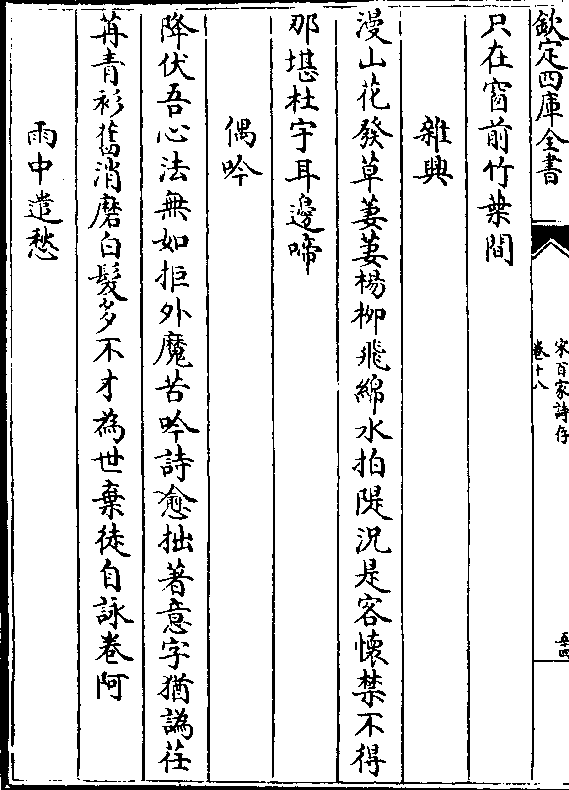 欽定四庫全書
宋百家詩存
卷十八
只在窗前竹葉間
雜興
漫山花發草萋萋楊柳飛綿水拍隄況是客懷禁不得
那堪杜宇耳邊啼
偶吟
降伏吾心法無如拒外魔苦吟詩愈拙著意字猶譌荏
苒青衫舊消磨白髮多不才為世棄徒自詠卷阿
雨中遣愁